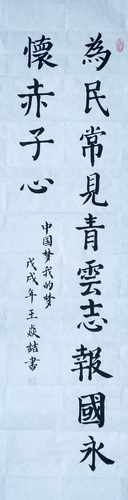 為民常見青雲志報國永
懷赤子心
中国梦我的梦
戊戌年王焱諎書